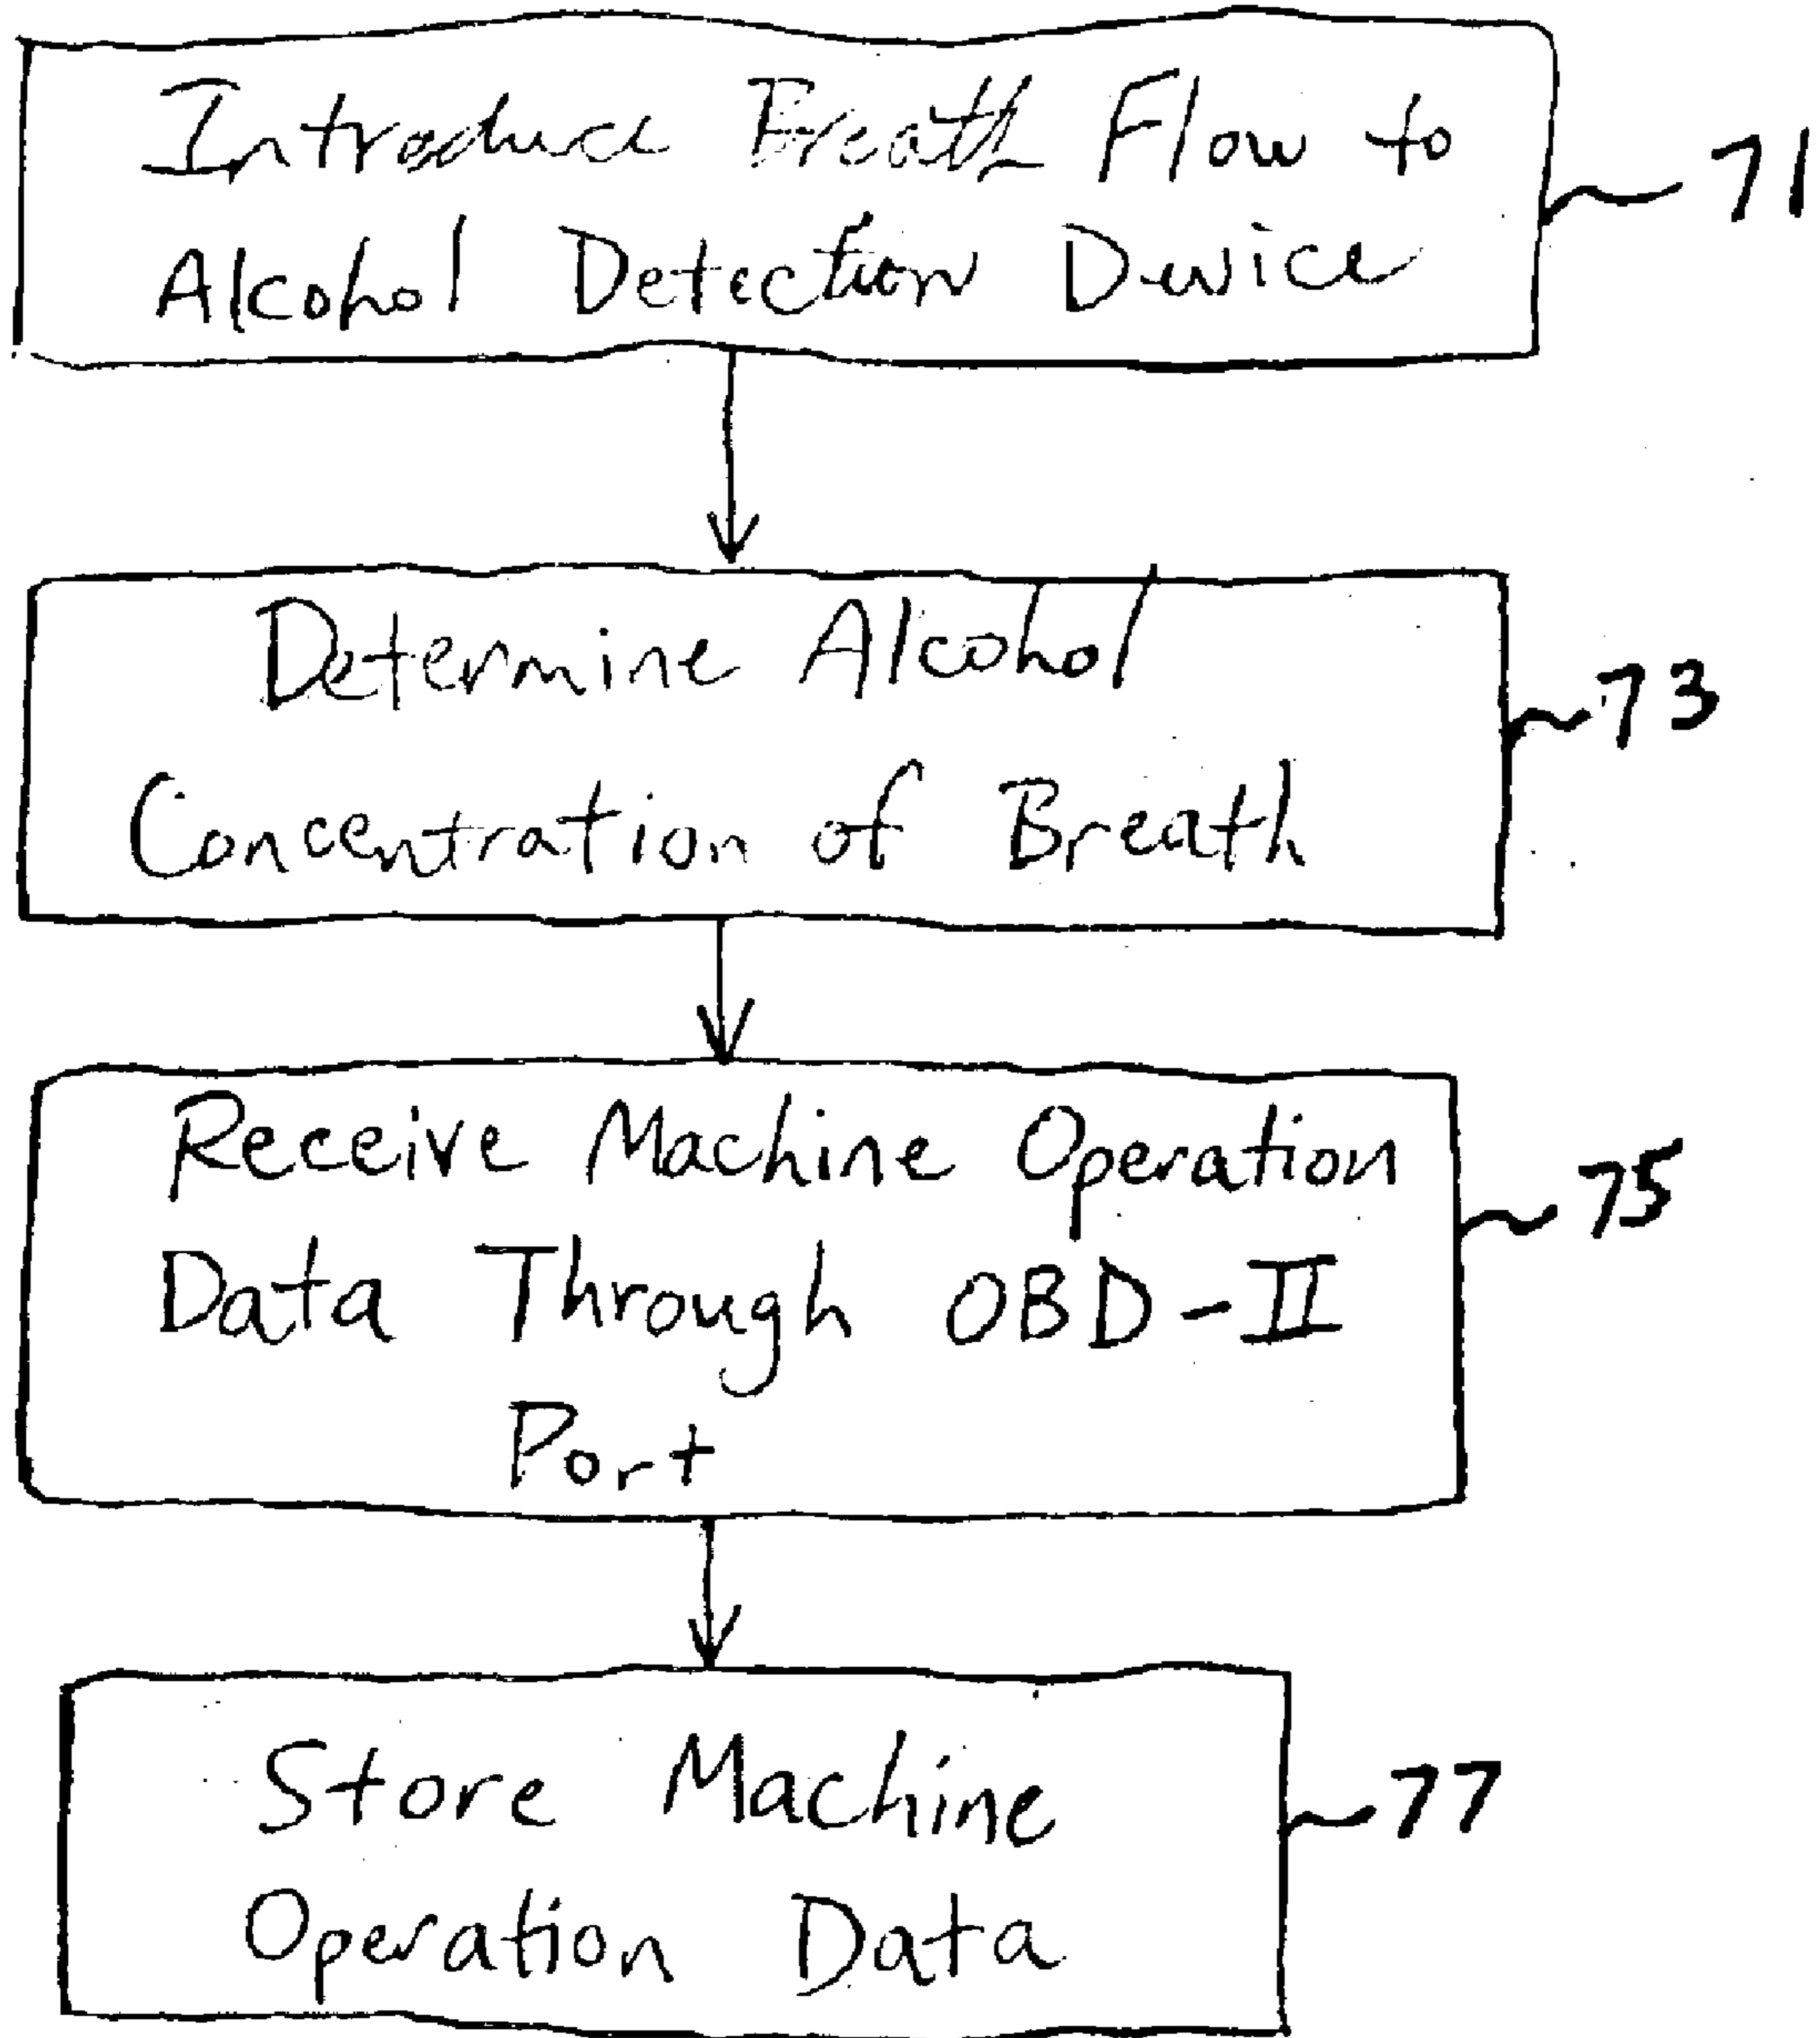 Introduce Breath Flow to
Alcohol Detection Device
71
Determine Alcohol
Concentration of Breath
73
Receive Machine Operation
Data Through OBD-II
Port
75
Store Machine
Operation Data
77